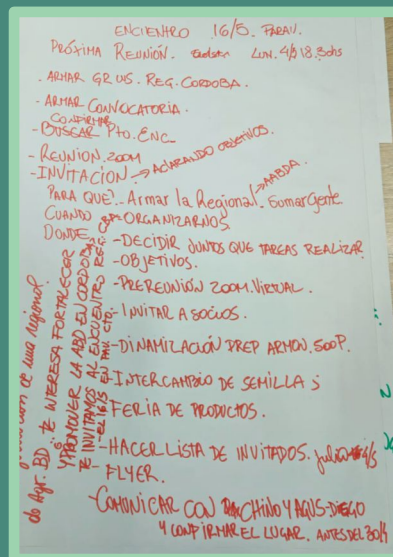 ENCIENTRO 16/5. PARAV.
PRÓXIMA REUNIÓN. LUN. 4/5 18.30hs
. ARMAR GR WS. REG. CORDOBA.
- ARMAR CONVOCATORIA.
CONFIRMAR
- BUSCAR Pto. ENC
- REUNION. ZOOM
- INVITACION → ACLARANDO OBJETIVOS.
PARA QUE? - Armar la Regional. Somar Gente → AABDA.
CUANDO ORGANIZARNOS
DONDE
- DECIDIR JUNTOS QUE TAREAS REALIZAR
- OBJETIVOS.
- PREREUNIÓN ZOOM. VIRTUAL.
- INVITAR A SOCIOS.
- DINAMIZACIÓN PREP ARMON. 500P.
- INTERCAMBIO DE SEMILLA S
FERIA DE PRODUCTOS.
- HACER LISTA DE INVITADOS. 4/5
- FLYER.
- COMUNICAR CON CHINO Y AGUS-DIEGO
Y CONFIRMAR EL LUGAR. ANTES DEL 30/4
TE INTERESA FORTALECER
Y PROMOVER LA ABD EN CORDOBA?
TE INVITAMOS AL ENCUENTRO REG.
- EL 16/5 EN
de una regional.
do Agr. BD